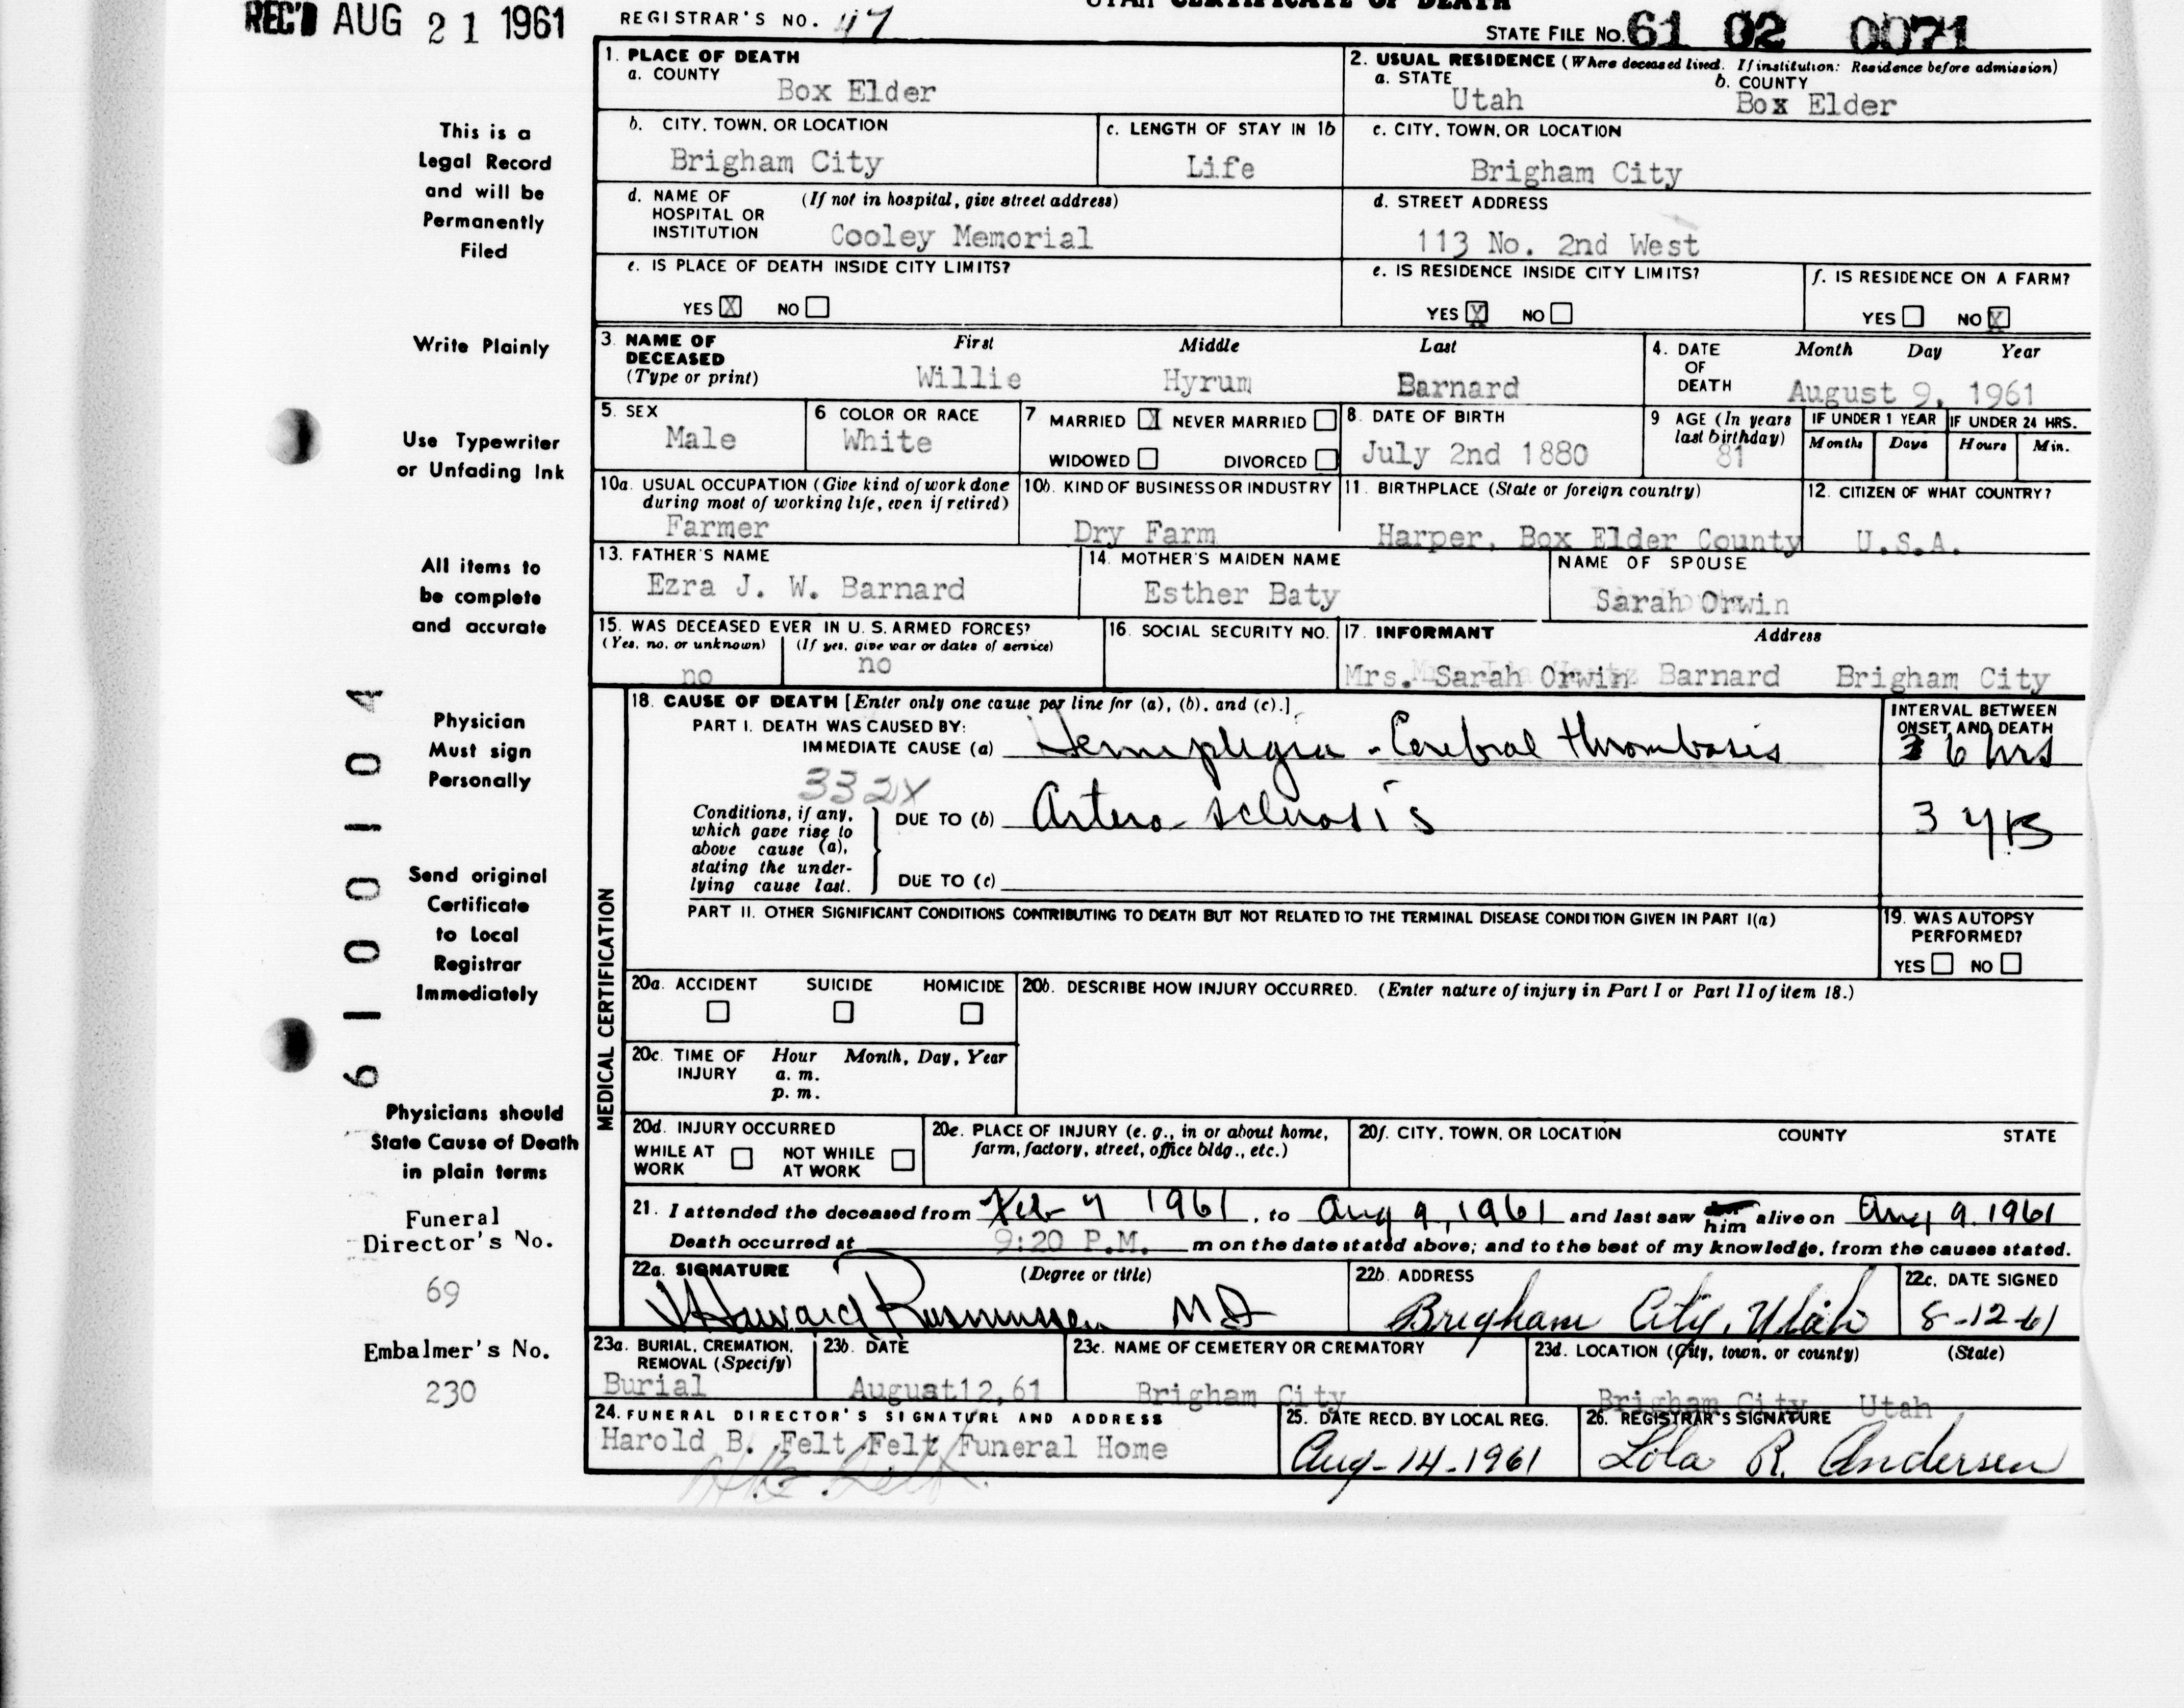 REC'D AUG 21 1961
REGISTRAR'S NO. 47
UTAH CERTIFICATE OF DEATH
STATE FILE NO. 61 02 0071
This is a
Legal Record
and will be
Permanently
Filed
Write Plainly
Use Typewriter
or Unfading Ink
All items to
be complete
and accurate
Physician
Must sign
Personally
Send original
Certificate
to Local
Registrar
Immediately
Physicians should
State Cause of Death
in plain terms
Funeral
Director's No.
69
Embalmer's No.
230
6100104
1. PLACE OF DEATH
a. COUNTY
Box Elder
2. USUAL RESIDENCE (Where deceased lived. If institution: Residence before admission)
a. STATE
Utah
b. COUNTY
Box Elder
b. CITY, TOWN, OR LOCATION
Brigham City
c. LENGTH OF STAY IN 1b
Life
c. CITY, TOWN, OR LOCATION
Brigham City
d. NAME OF HOSPITAL OR INSTITUTION (If not in hospital, give street address)
Cooley Memorial
d. STREET ADDRESS
113 No. 2nd West
e. IS PLACE OF DEATH INSIDE CITY LIMITS?
YES X NO
e. IS RESIDENCE INSIDE CITY LIMITS?
YES X NO
f. IS RESIDENCE ON A FARM?
YES NO X
3. NAME OF DECEASED (Type or print)
First Middle Last
Willie Hyrum Barnard
4. DATE OF DEATH
Month Day Year
August 9, 1961
5. SEX
Male
6 COLOR OR RACE
White
7 MARRIED X NEVER MARRIED
WIDOWED DIVORCED
8. DATE OF BIRTH
July 2nd 1880
9 AGE (In years last birthday)
81
IF UNDER 1 YEAR
Months Days
IF UNDER 24 HRS.
Hours Min.
10a. USUAL OCCUPATION (Give kind of work done
during most of working life, even if retired)
Farmer
10b. KIND OF BUSINESS OR INDUSTRY
Dry Farm
11. BIRTHPLACE (State or foreign country)
Harper, Box Elder County
12. CITIZEN OF WHAT COUNTRY?
U.S.A.
13. FATHER'S NAME
Ezra J. W. Barnard
14. MOTHER'S MAIDEN NAME
Esther Baty
NAME OF SPOUSE
Sarah Orwin
15. WAS DECEASED EVER IN U. S. ARMED FORCES?
(Yes, no, or unknown) (If yes, give war or dates of service)
no no
16. SOCIAL SECURITY NO.
17. INFORMANT Address
Mrs. Sarah Orwin Barnard Brigham City
MEDICAL CERTIFICATION
18. CAUSE OF DEATH [Enter only one cause per line for (a), (b), and (c).]
INTERVAL BETWEEN
ONSET AND DEATH
PART I. DEATH WAS CAUSED BY:
IMMEDIATE CAUSE (a) Hemiplegia - Cerebral thrombosis
6 hrs
332X
Conditions, if any,
which gave rise to
above cause (a),
stating the under-
lying cause last.
DUE TO (b) Artero sclerosis
3 yrs
DUE TO (c)
PART II. OTHER SIGNIFICANT CONDITIONS CONTRIBUTING TO DEATH BUT NOT RELATED TO THE TERMINAL DISEASE CONDITION GIVEN IN PART I(a)
19. WAS AUTOPSY
PERFORMED?
YES NO
20a. ACCIDENT SUICIDE HOMICIDE
20b. DESCRIBE HOW INJURY OCCURRED. (Enter nature of injury in Part I or Part II of item 18.)
20c. TIME OF INJURY
Hour Month, Day, Year
a. m.
p. m.
20d. INJURY OCCURRED
WHILE AT WORK NOT WHILE AT WORK
20e. PLACE OF INJURY (e. g., in or about home,
farm, factory, street, office bldg., etc.)
20f. CITY, TOWN, OR LOCATION COUNTY STATE
21. I attended the deceased from Feb 7 1961, to Aug 9, 1961 and last saw him alive on Aug 9. 1961
Death occurred at 9:20 P.M. m on the date stated above; and to the best of my knowledge, from the causes stated.
22a. SIGNATURE (Degree or title)
Howard Rasmussen MD
22b. ADDRESS
Brigham City, Utah
22c. DATE SIGNED
8-12-61
23a. BURIAL, CREMATION,
REMOVAL (Specify)
Burial
23b. DATE
August12,61
23c. NAME OF CEMETERY OR CREMATORY
Brigham City
23d. LOCATION (City, town, or county) (State)
Brigham City Utah
24. FUNERAL DIRECTOR'S SIGNATURE AND ADDRESS
Harold B. Felt Felt Funeral Home
25. DATE RECD. BY LOCAL REG.
Aug-14-1961
26. REGISTRAR'S SIGNATURE
Lola R. Andersen